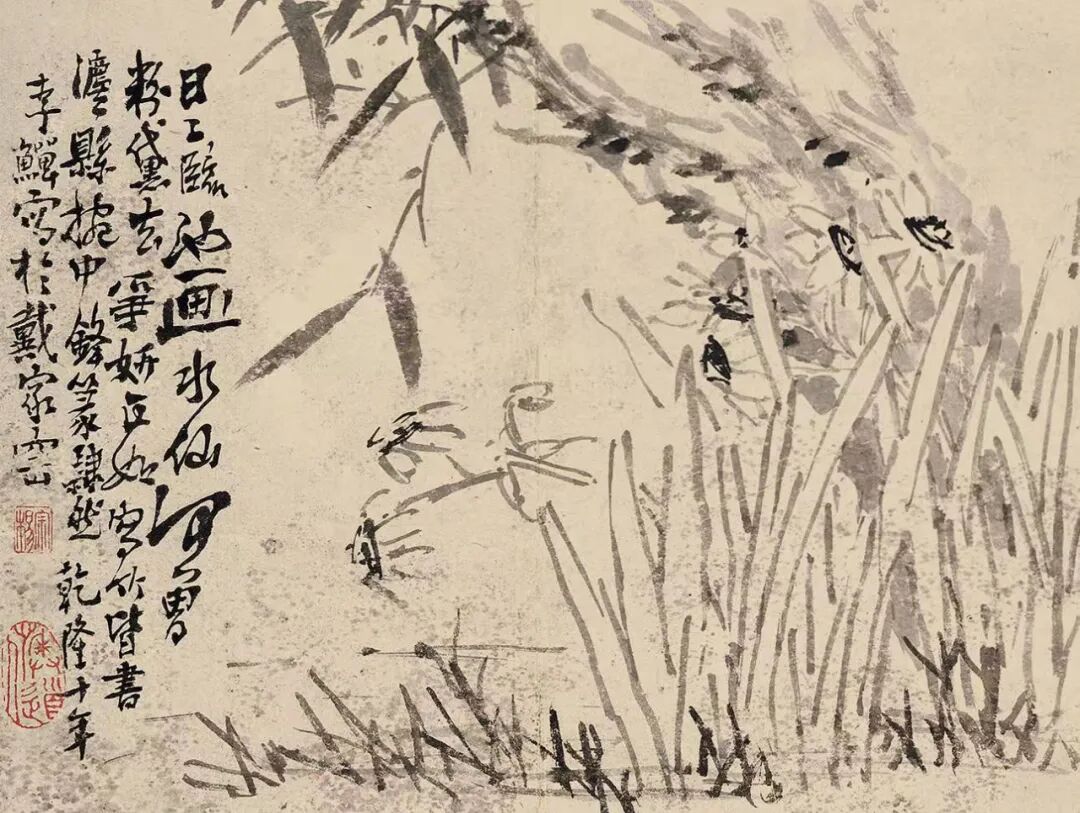 日〻臨池畫水仙何曾
粉黛去爭妍正如寫竹皆書
灋縣捥中鋒篆隸然 乾隆十年
李鱓寫於戴家
宗揚